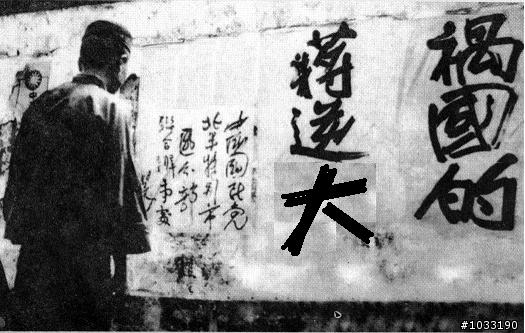 禍國的
蔣逆大
中國國民党
北平特別市
區分部
聯合辦事處
#1033190